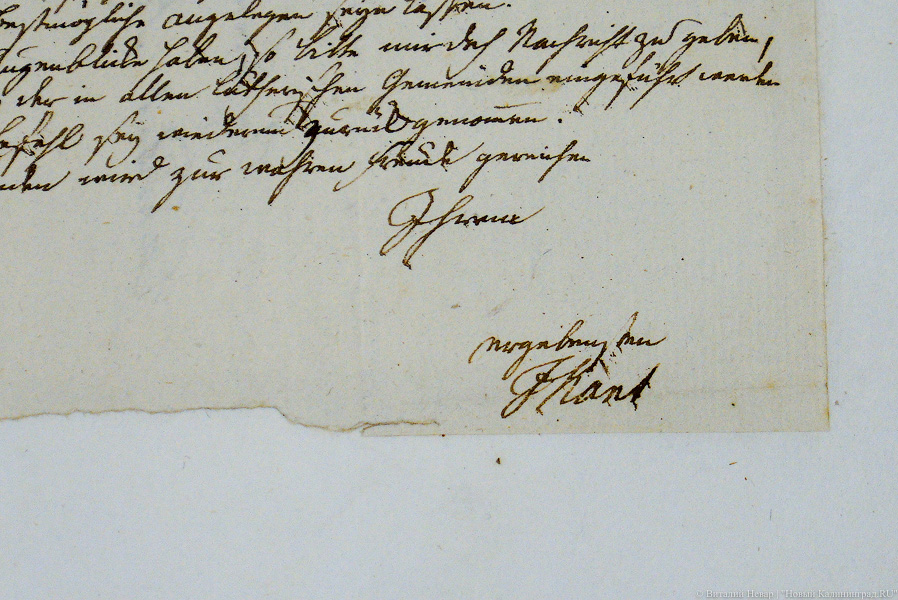 bestmögliche angelegen seyn lassen.
Augenblicke haben, so bitte mir doch Nachricht zu geben,
der in allen lutherischen Gemeinden eingeführt werden
Befehl sey wiederum zurückgenommen.
wird zur wahren Freude gereichen
Ihrem
ergebensten
I Kant
© Виталий Невар | "Новый Калининград.RU"